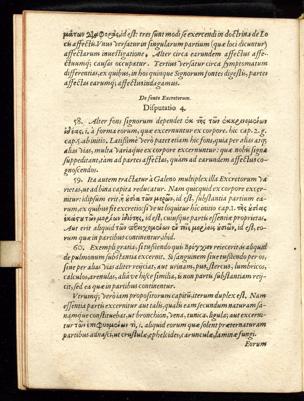 μάτων διαφορᾶς, id est: tres sunt modi se exercendi in doctrina de Lo
cis affectis. Unus versatur in singularum partium (quæ loci dicuntur)
affectarum investigatione. Alter circa earundem affectus affe-
ctuumq́; causas occupatur. Tertius versatur circa symptomatum
differentias, ex quibus, in hos quinque Signorum fontes digestis, partes
affectas earumq́; affectus indagamus.
De fonte Excretorum.
Disputatio 4.
58. Alter fons signorum dependet ἐκ τῆς τῶν ἐκκρινομένων
ἰδέας, i, à forma eorum, quæ excernuntur ex corpore. hic cap. 2. g.
cap. 5. ab initio. Latissimè verò patet etiam hic fons, quia per alias atq́;
alias vias, multa variaque ex corpore excernuntur: quæ nobis signa
suppeditant, tàm ad partes affectas, quàm ad earundem affectus co-
gnoscendos.
59. Ita autem tractatur à Galeno multiplex illa Excretorum va
rietas, ut ad bina capita reducatur. Nam quicquid ex corpore excer-
nitur: id ipsum erit, ἢ οὐσία τῶν μορίων, id est, substantia partium ea-
rum, ex quibus fit excretio: sive ut loquitur hic initio cap. 1. τῆς οὐσίας
ἑκάστου τῶν μορίων ἰδιότης, id est, cuiusque partis essentiæ proprietas.
Aut erit aliquid τῶν περιεχομένων ἐν τοῖς μορίοις αὐτῶν, id est, eo-
rum quæ in partibus continentur. ibid.
60. Exempli gratia, si tussiendo quis βρόγχιον reiecerit: is aliquid
de pulmonum substantia excernit. Si sanguinem sive tussiendo per os,
sive per alias vias alter reijciat, aut urinam, pus, stercus, lumbricos,
calculos, arenulas, aliáve his similia, is non partis substantiam reij-
cit, sed ea quæ in partibus continentur.
Verumq́; verò iam propositorum capitum iterum duplex est. Nam
essentia partis excernitur aut talis, qualis eam secundum naturam sa-
namque constituebat, ut bronchion, vena, tunica, ligula; aut excerni-
tur τῶν ἐπιφυομένων τι, i, aliquid eorum quæ solent præter naturam
partibus adnasci, ut crustulæ, ephelcides, carunculæ, laminæ fungi.
Eorum